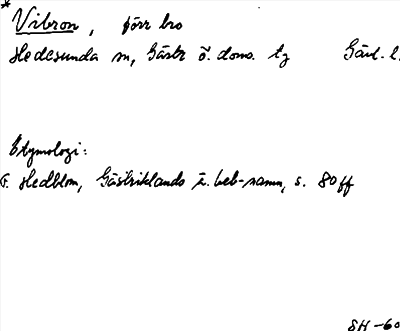 *
Vibron, förr bro
Hedesunda sn, Gästr ö. doms. tg Gävl. l.
Etymologi:
F. Hedblom, Gästriklands ä. beb-namn, s. 80ff
SH -60